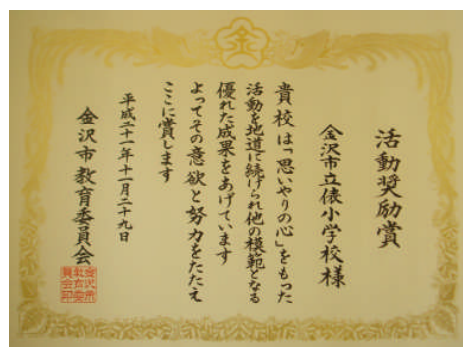 金
活動奨励賞
金沢市立俵小学校様
貴校は「思いやりの心」をもった
活動を地道に続けられ他の模範となる
優れた成果をあげています
よってその意欲と努力をたたえ
ここに賞します
平成二十一年十一月二十九日
金沢市教育委員会
金沢市
教育委
員会印